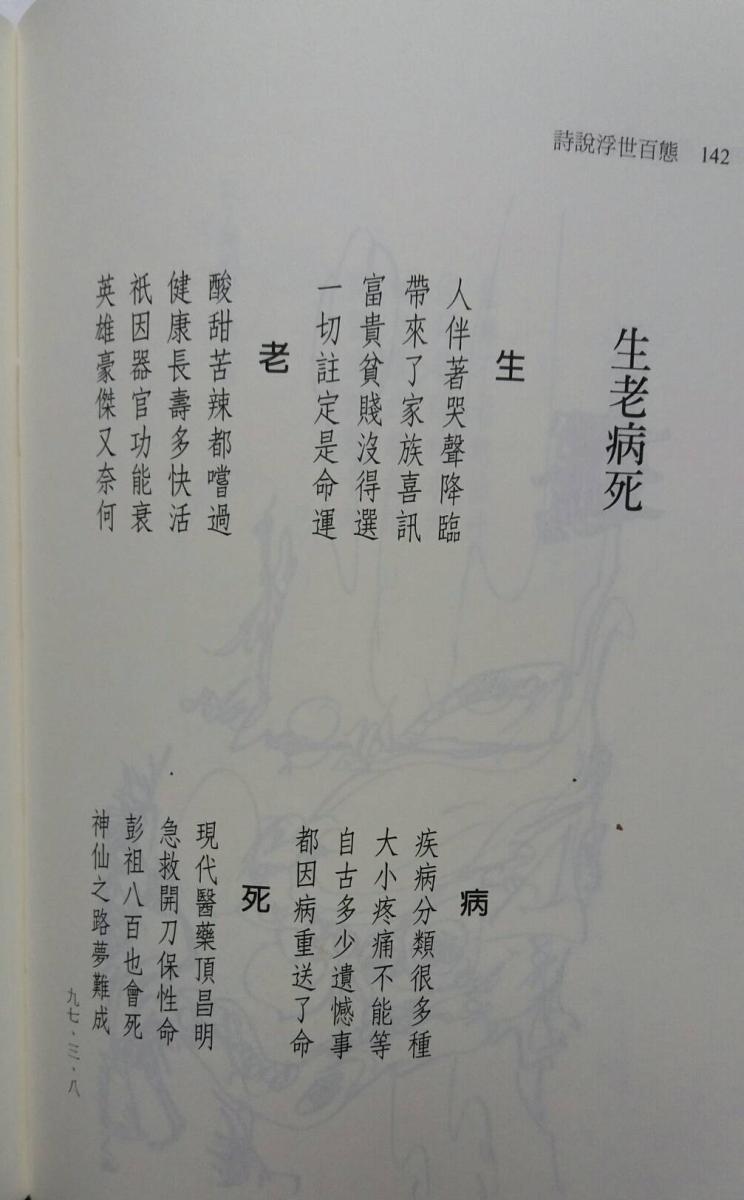 詩說浮世百態 142
生老病死
生
人伴著哭聲降臨
帶來了家族喜訊
富貴貧賤沒得選
一切註定是命運
老
酸甜苦辣都嚐過
健康長壽多快活
祇因器官功能衰
英雄豪傑又奈何
病
疾病分類很多種
大小疼痛不能等
自古多少遺憾事
都因病重送了命
死
現代醫藥頂昌明
急救開刀保性命
彭祖八百也會死
神仙之路夢難成
九七．三．八